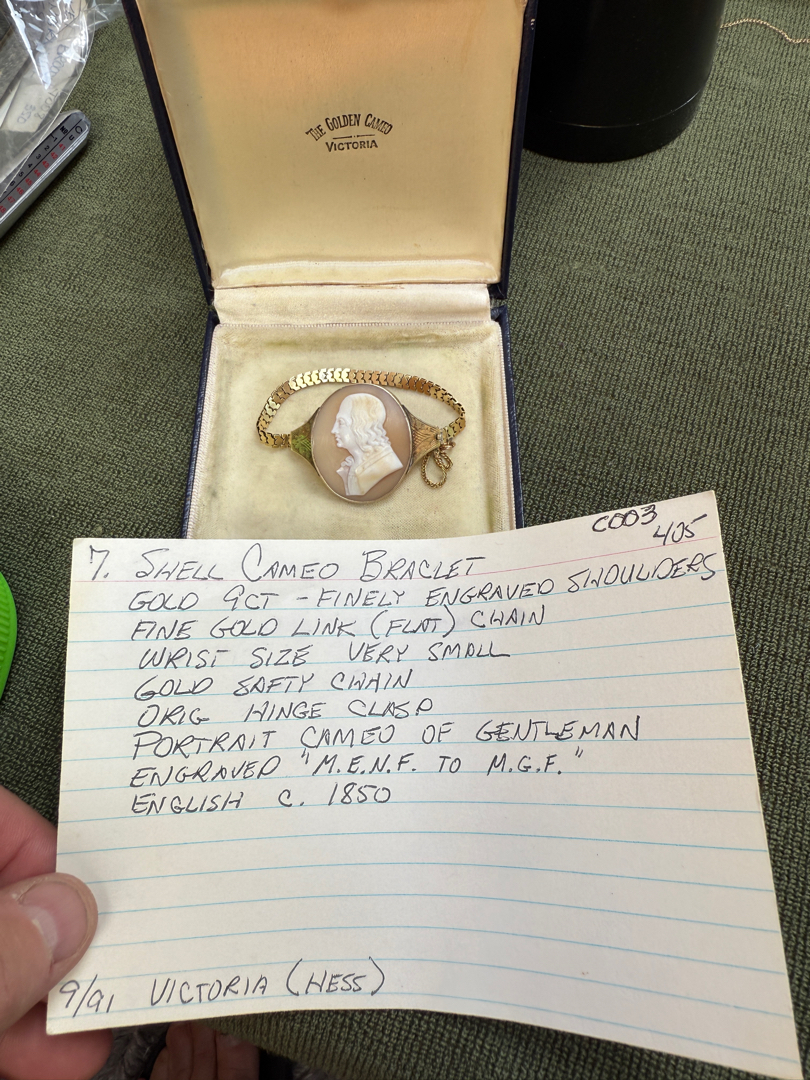 THE GOLDEN CAMEO
VICTORIA
C003
405
7. SHELL CAMEO BRACLET
GOLD 9CT - FINELY ENGRAVED SHOULDERS
FINE GOLD LINK (FLAT) CHAIN
WRIST SIZE VERY SMALL
GOLD SAFTY CHAIN
ORIG HINGE CLASP
PORTRAIT CAMEO OF GENTLEMAN
ENGRAVED "M.E.N.F. TO M.G.F."
ENGLISH C. 1850
9/91 VICTORIA (HESS)